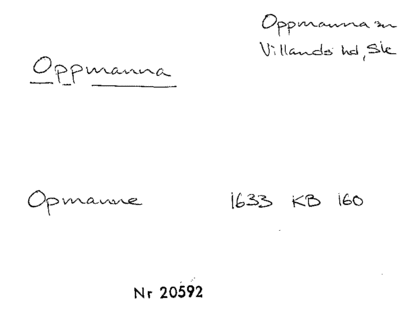 Oppmanna sn
Villands hd, Sk
Oppmanna
Opmanne 1633 KB 160
Nr 20592